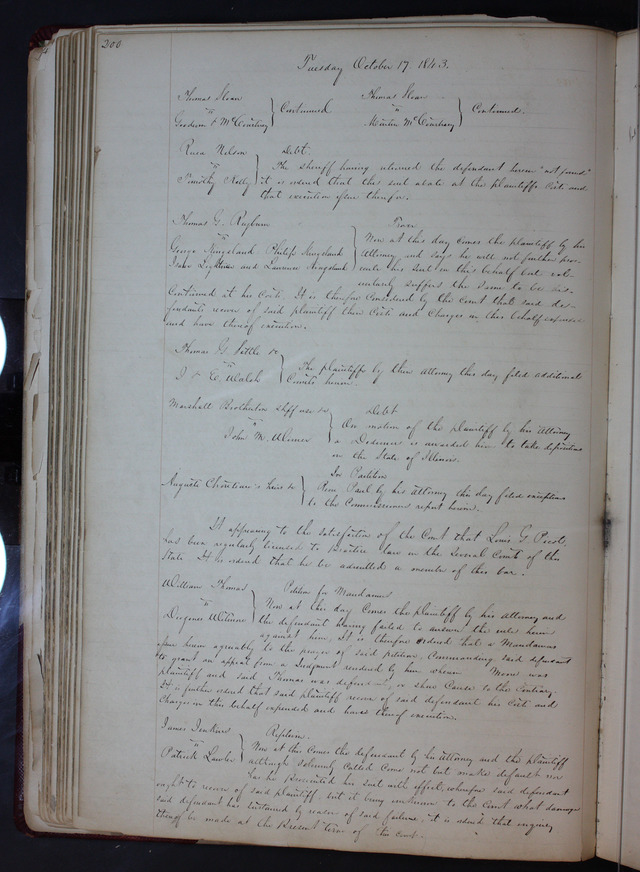 200
Tuesday October 17 1843.
Thomas Sloan
vs
Goodwin & McCourtney
Continued
Thomas Sloan
vs
McCourtney
Continued.
Nelson
vs
Timothy Kelly
Debt.
The Sheriff having returned the defendant herein "not found"
it is ordered that this suit abate at the plaintiffs Costs and
that execution issue therefor.
Thomas G.
vs
George Kingsland Philip Kingsland
Lightner and Lawrence Kingsland
Trover
Now at this day comes the plaintiff by his
Attorney and says he will not further pros-
ecute his suit in this behalf but vol-
untarily suffers the same to be dis-
continued at his Costs, It is therefore Considered by the Court that said de-
fendants recover of said plaintiff their Costs and Charges in this behalf expended
and have thereof execution.
Thomas G. Settle &c
vs
J & E. Walsh
The plaintiffs by their Attorney this day filed additional
Counts herein.
Marshall Brotherton Shff use &c
vs
John M. Wimer
Debt
On motion of the plaintiff by his Attorney
a Dedimus is awarded him to take depositions
in the State of Illinois.
Auguste Chouteau's heirs &c
In Partition
Rene Paul by his attorney this day filed exceptions
to the Commissioners report herein.
It appearing to the satisfaction of the Court that Louis G.
has been regularly licensed to practice law in the Several Courts of this
State It is ordered that he be admitted a member of this bar.
William Thomas
vs
Diogenes Wetmore
Petition for Mandamus
Now at this day Comes the plaintiff by his Attorney and
the defendant having failed to answer the rule herein
against him, It is therefore ordered that a Mandamus
issue herein agreeably to the prayer of said petition, Commanding said defendant
to grant an appeal from a Judgment rendered by him wherein Moore was
plaintiff and said Thomas was defendant, or show Cause to the Contrary.
It is further ordered that said plaintiff recover of said defendant his Costs and
Charges in this behalf expended and have thereof execution.
James Jenkins
vs
Patrick Lawler
Replevin.
Now at this Comes the defendant by his attorney and the plaintiff
although solemnly called Come not but make default nor
has he prosecuted his suit with effect, wherefore said defendant
ought to recover of said plaintiff but it being unknown to the Court what damages
said defendant has sustained by reason of said failure, it is ordered that enquiry
thereof be made at the present term of this court.